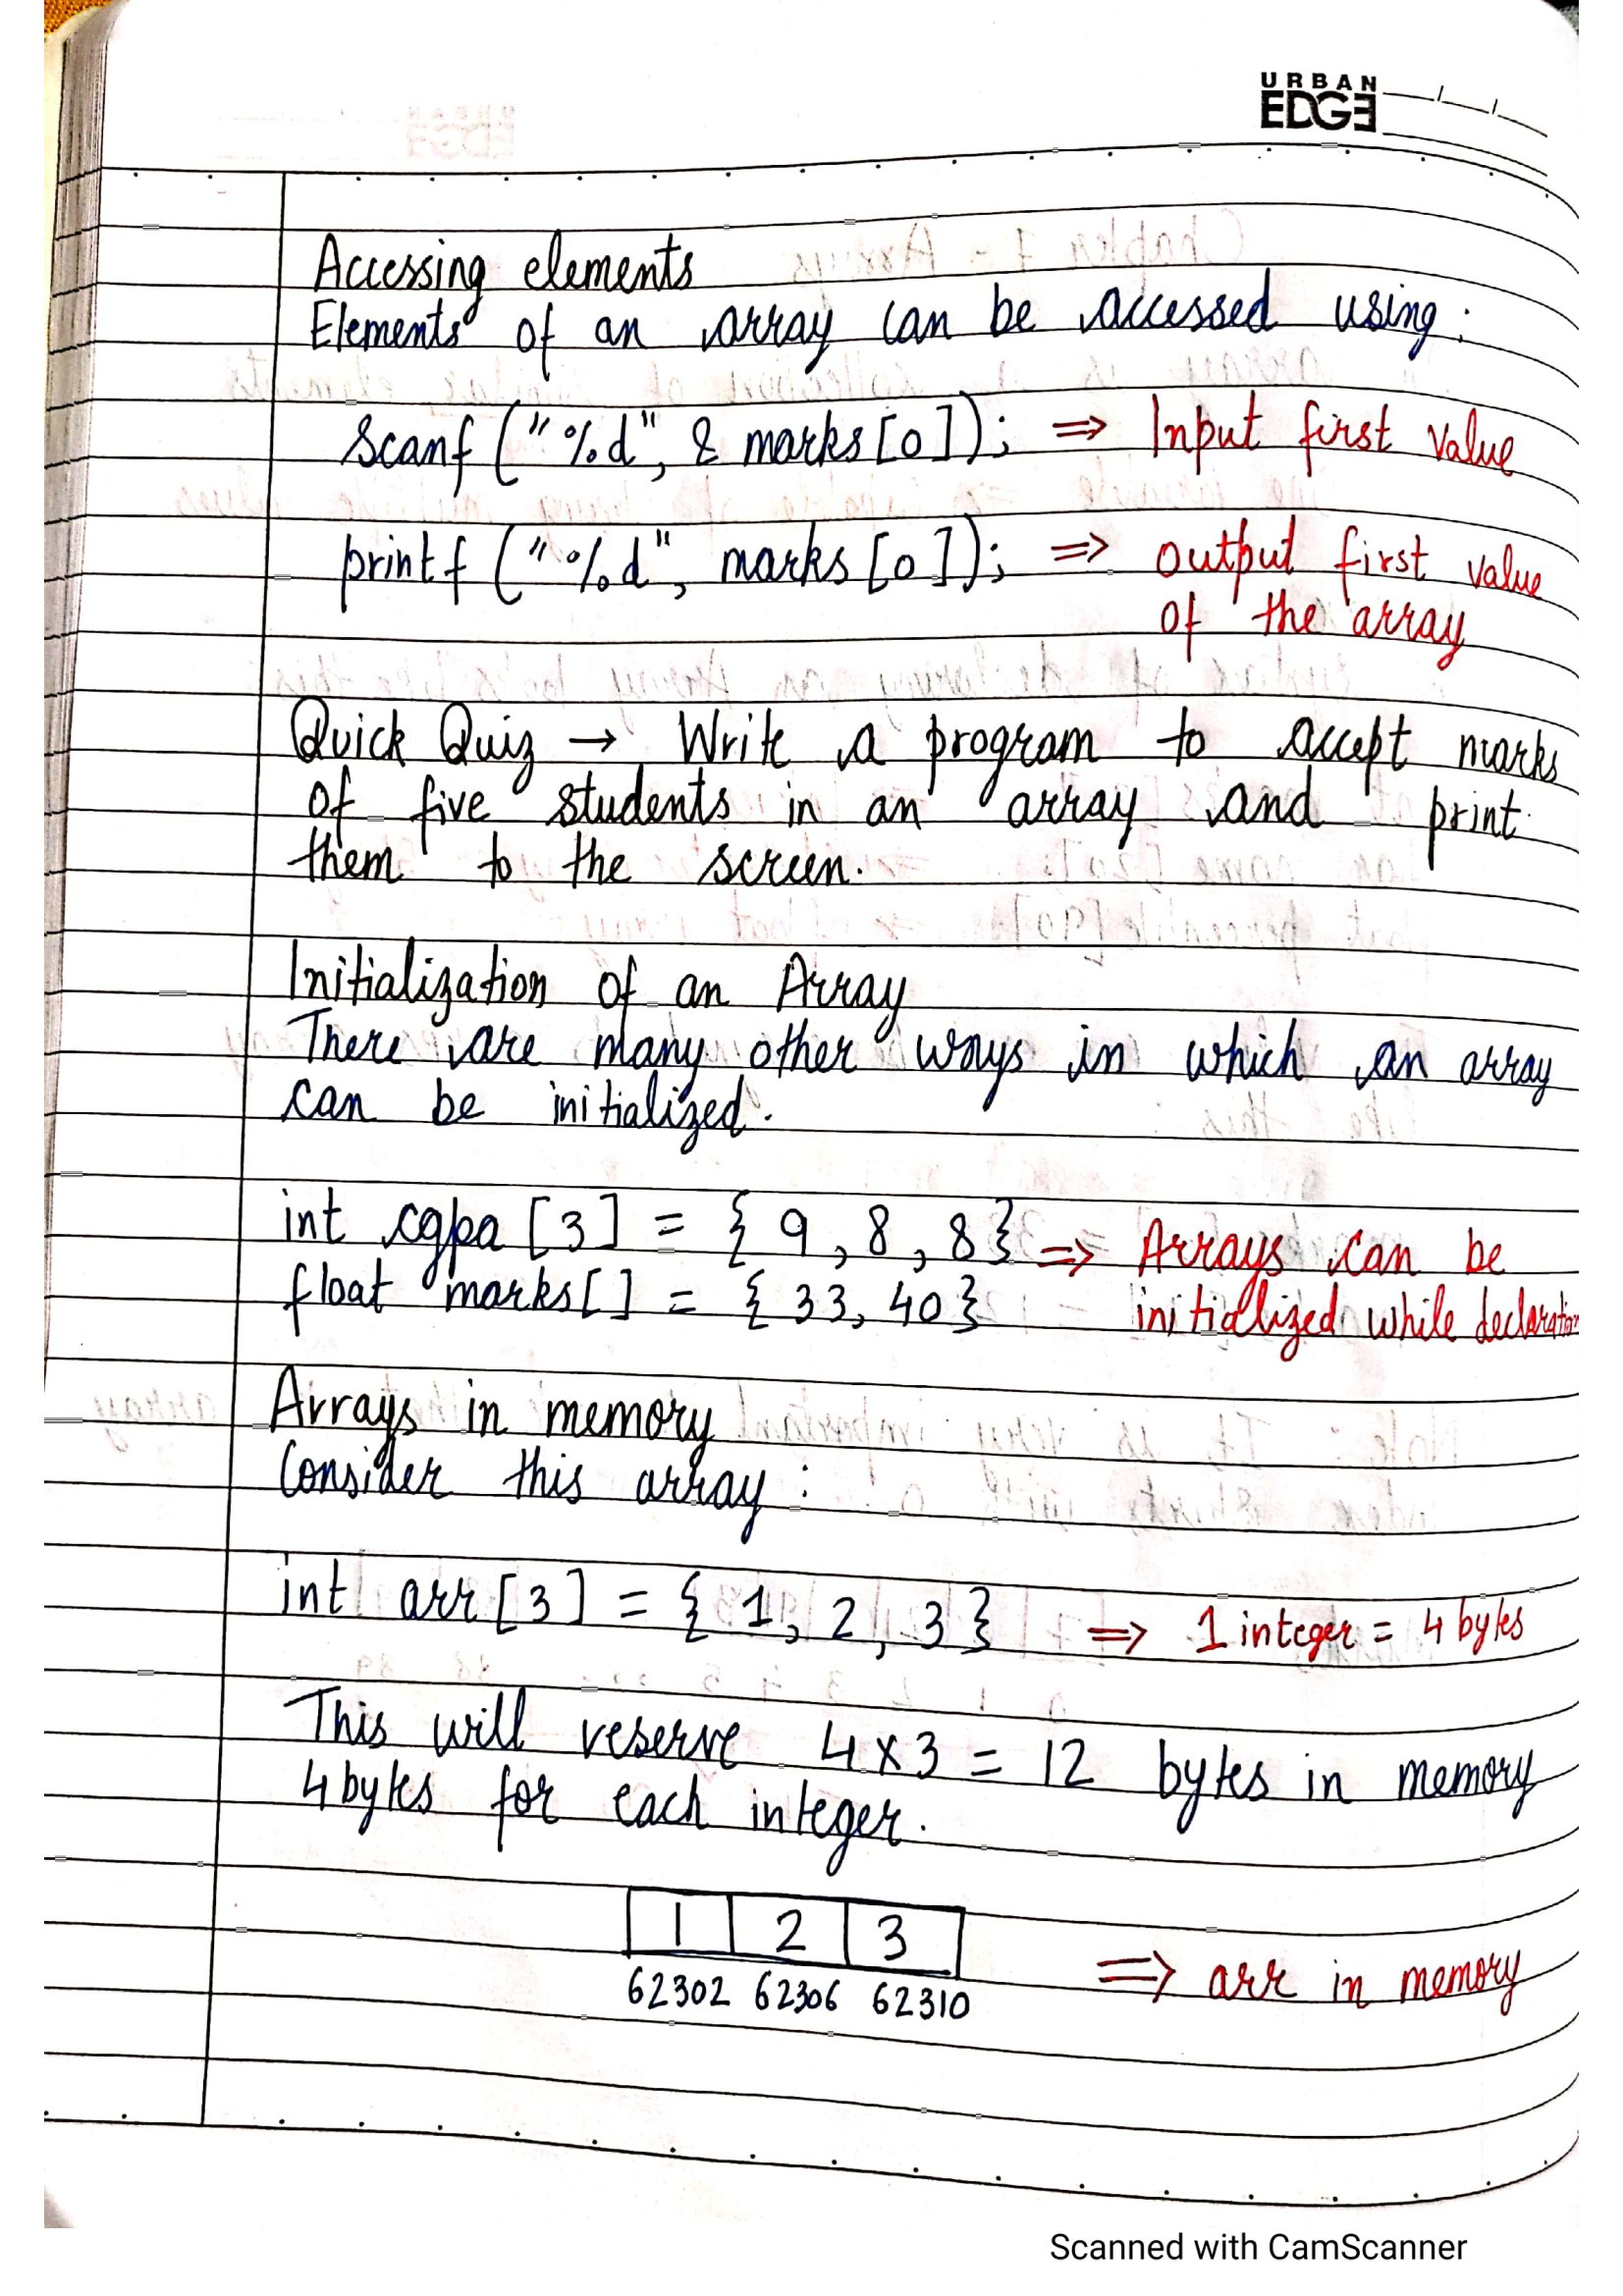 URBAN
EDGE
Accessing elements
Elements of an array can be accessed using :
scanf ("%d", & marks [0]); ⇒ Input first value
printf ("%d", marks [0]); ⇒ output first value
of the array
Quick Quiz → Write a program to accept marks
of five students in an array and print
them to the screen.
Initialization of an Array
There are many other ways in which an array
can be initialized.
int cgpa [3] = { 9, 8, 8} ⇒ Arrays can be
float marks[] = { 33, 40} initialized while declaration
Arrays in memory
Consider this array :
int arr [3] = { 1, 2, 3 } ⇒ 1 integer = 4 bytes
This will reserve 4x3 = 12 bytes in memory
4 bytes for each integer.
1 2 3
62302 62306 62310 ⇒ arr in memory
Scanned with CamScanner